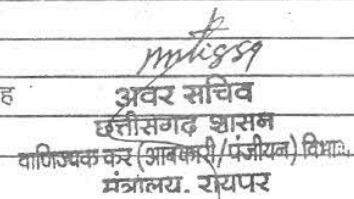 ह
अवर सचिव
छत्तीसगढ़ शासन
वाणिज्यक कर (आबकारी/पंजीयन) विभाग.
मंत्रालय. रायपर